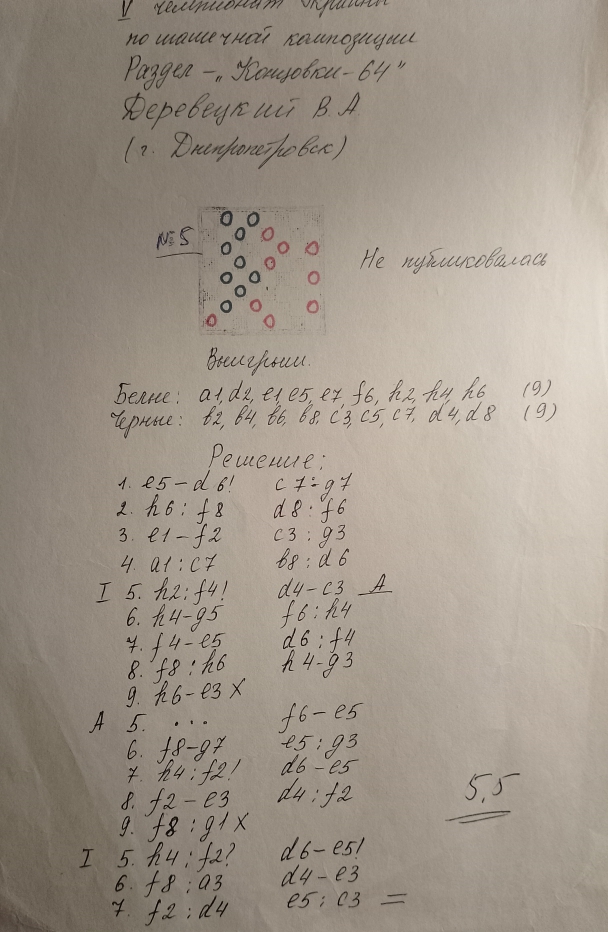 V чемпионат Украины
по шашечной композиции
Раздел - „Концовки-64"
Деревецкий В. А.
(г. Днепропетровск)
№5
Не публиковалась
Выигрыш.
Белые: a1, d2, e1, e5, e7, f6, h2, h4, h6 (9)
Черные: b2, b4, b6, b8, c3, c5, c7, d4, d8 (9)
Решение:
1. e5-d6! c7:g7
2. h6:f8 d8:f6
3. e1-f2 c3:g3
4. a1:c7 b8:d6
I 5. h2:f4! d4-c3 A
6. h4-g5 f6:h4
7. f4-e5 d6:f4
8. f8:h6 h4-g3
9. h6-e3 X
A 5. ... f6-e5
6. f8-g7 e5:g3
7. h4:f2! d6-e5
8. f2-e3 d4:f2
9. f8:g1 X
I 5. h4:f2? d6-e5!
6. f8:a3 d4-e3
7. f2:d4 e5:c3 =
5,5